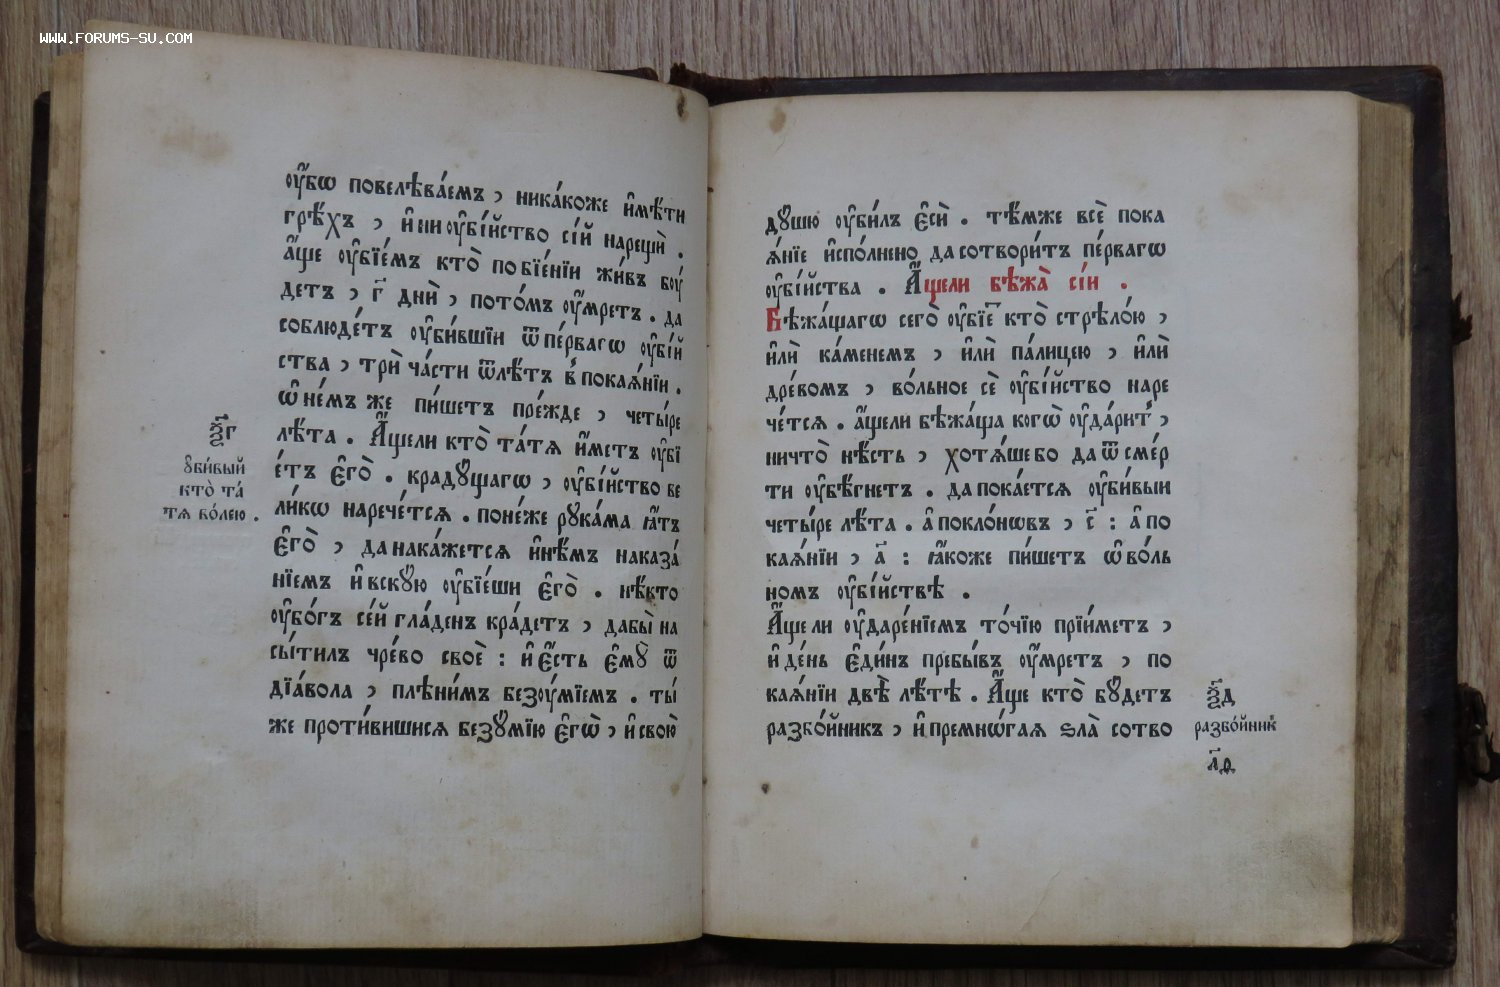 WWW.FORUMS-SU.COM
ᲂу҆́бѡ повелѣва́емъ , ника́коже и҆мѣ́ти
грѣ́хъ , и҆ ни ᲂу҆бі́йство сі́й нарещѝ .
а҆́ще ᲂу҆бїе́мъ кто̀ по бїе́нїи жи́въ бᲂу́
детъ , г҃ днѝ , пото́мъ ᲂу҆́мретъ . да
соблюде́тъ ᲂу҆би́вшїи ѿ пе́рвагѡ ᲂу҆бі́й
ства , трѝ ча́сти ѿлѣ́тъ в̾ покаѧ́нїи .
ѡ҆ не́мъ же пи́шетъ пре́жде , четы́ре
лѣ́та . А҆́щели кто̀ та́тѧ и҆́метъ ᲂу҆бї
е́тъ є҆го̀ . краду́щагѡ , ᲂу҆бі́йство ве
ли́кѡ нарече́тсѧ . поне́же рука́ма ꙗ҆́тъ
є҆го̀ , да нака́жетсѧ и҆нѣ́мъ наказа́
нїемъ и҆ вску́ю ᲂу҆бїе́ши є҆го̀ . нѣ́кто
ᲂу҆бо́гъ се́й гла́денъ кра́детъ , дабы̀ на
сы́тилъ чре́во своѐ : и҆ є҆́сть є҆мꙋ̀ ѿ
дїа́вола , плѣни́мъ безᲂу́мїемъ . ты́
же проти́вишисѧ безꙋ́мїю є҆гѡ̀ , и҆ свою̀
ѯ҃г
ꙋби́вый
кто̀ та́
тѧ во́лею .
дꙋ́шю ᲂу҆би́лъ є҆сѝ . тѣ́мже всѐ пока
ѧ́нїе и҆спо́лнено да сотвори́тъ пе́рвагѡ
ᲂу҆бі́йства . А҆́щели бѣжа̀ сі́и .
Бѣжа́щагѡ сего̀ ᲂу҆бїе҃ кто̀ стрѣло́ю ,
и҆лѝ ка́менемъ , и҆лѝ па́лицею , и҆лѝ
дре́вомъ , во́льное сѐ ᲂу҆бі́йство наре
че́тсѧ . а҆́щели бѣжа́ща когѡ̀ ᲂу҆да́рит̾ ,
ничто̀ нѣ́сть , хотѧ́ше бо да ѿ сме́р
ти ᲂу҆бѣ́гнетъ . да пока́етсѧ ᲂу҆би́выи
четы́ре лѣ́та . а҆ покло́нѡвъ , с҃ : а҆ по
каѧ́нїи , а҃ : ꙗ҆́коже пи́шетъ ѡ҆ во́ль
номъ ᲂу҆бі́йствѣ .
А҆́ще ли ᲂу҆даре́нїемъ то́чїю прїи́метъ ,
и҆ де́нь є҆ди́нъ пребы́въ ᲂу҆́мретъ , по
каѧ́нїи двѣ̀ лѣ́тѣ . А҆́ще кто̀ бꙋ́детъ
разбо́йникъ , и҆ премнѡ́гаѧ ѕла̀ сотво
ѯ҃д
разбо́йник̾